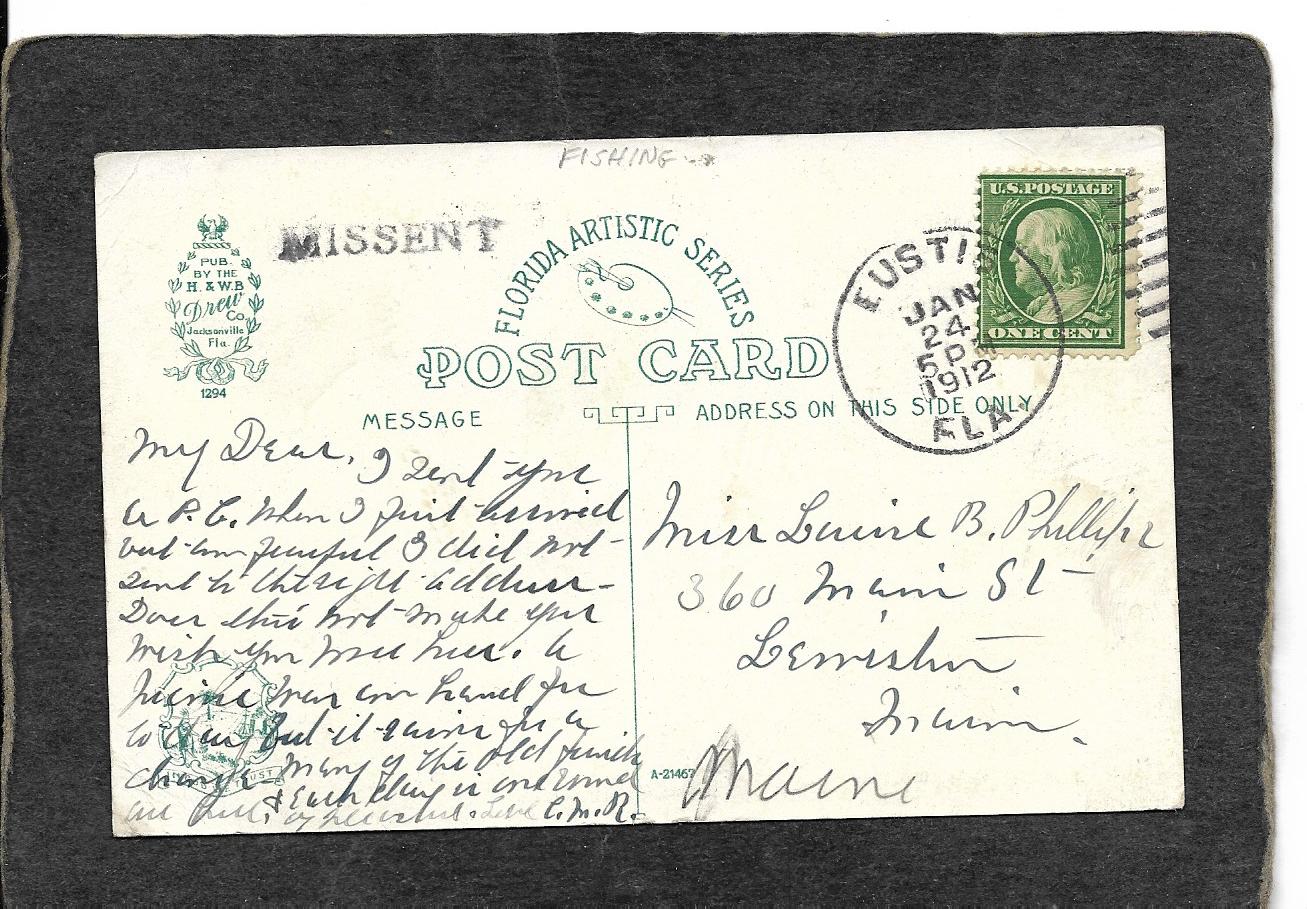 FISHING
PUB.
BY THE
H. & W.B
Drew
Co.
Jacksonville
Fla.
1294
MISSENT
FLORIDA ARTISTIC SERIES
POST CARD
MESSAGE
ADDRESS ON THIS SIDE ONLY
U.S. POSTAGE
ONE CENT
EUSTIS
JAN
24
5 P M
1912
FLA.
My Dear, I send you
a P.C. when I first arrived
but am fearful I did not
send to the right address
Does this not make you
wish you were here. A
picnic was on hand for
to day but it rains for a
change Many of the old
are here, & Each day is
Love C.M.R.
Miss Louise B. Phillips
360 Main St
Lewiston
Maine.
Maine
A-21467